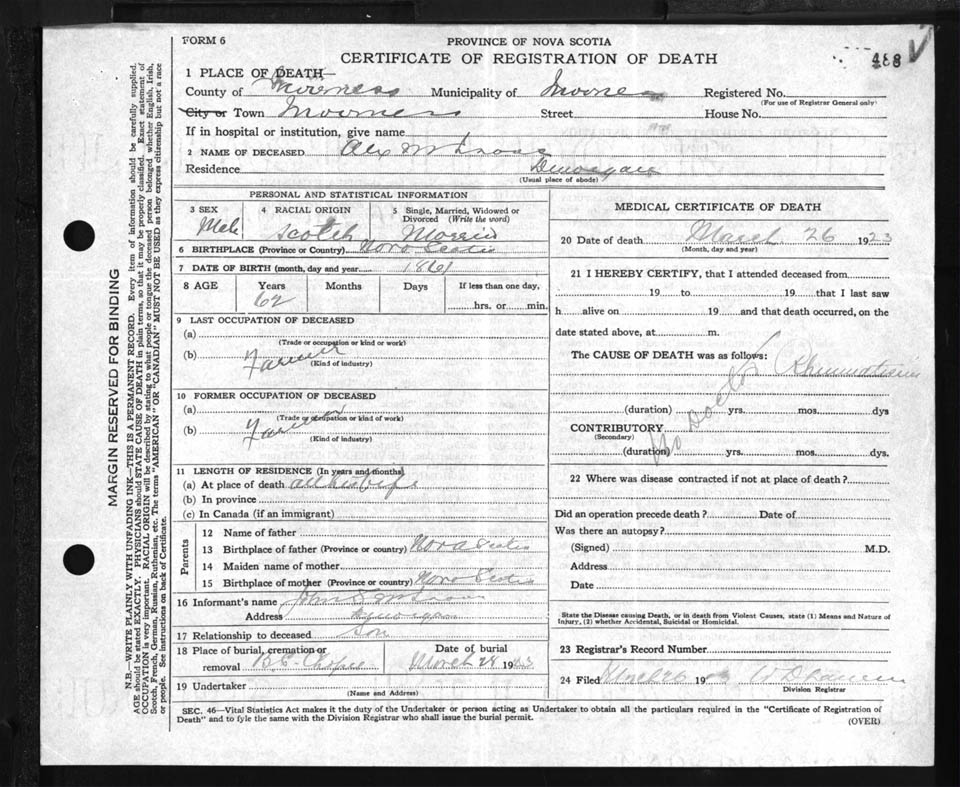 FORM 6
PROVINCE OF NOVA SCOTIA
488
CERTIFICATE OF REGISTRATION OF DEATH
1 PLACE OF DEATH—
County of Inverness Municipality of Registered No.
(For use of Registrar General only)
City or Town Street House No.
If in hospital or institution, give name
2 NAME OF DECEASED Alex
Residence
(Usual place of abode)
PERSONAL AND STATISTICAL INFORMATION
3 SEX 4 RACIAL ORIGIN 5 Single, Married, Widowed or
Divorced (Write the word)
Male Scotch Married
6 BIRTHPLACE (Province or Country) Nova Scotia
7 DATE OF BIRTH (month, day and year 1861
8 AGE Years Months Days If less than one day,
62 hrs. or min.
9 LAST OCCUPATION OF DECEASED
(a)
(Trade or occupation or kind or work)
(b) Farmer
(Kind of industry)
10 FORMER OCCUPATION OF DECEASED
(a)
(Trade or occupation or kind of work)
(b) Farmer
(Kind of industry)
11 LENGTH OF RESIDENCE (In years and months)
(a) At place of death all his life
(b) In province
(c) In Canada (if an immigrant)
Parents
12 Name of father
13 Birthplace of father (Province or country) Nova Scotia
14 Maiden name of mother
15 Birthplace of mother (Province or country) Nova Scotia
16 Informant's name John
Address
17 Relationship to deceased Son
18 Place of burial, cremation or Date of burial
removal March 28 1923
19 Undertaker
(Name and Address)
MEDICAL CERTIFICATE OF DEATH
20 Date of death March 26 1923
(Month, day and year)
21 I HEREBY CERTIFY, that I attended deceased from
19 to 19 that I last saw
h alive on 19 and that death occurred, on the
date stated above, at m.
The CAUSE OF DEATH was as follows:
Rheumatism
No Doctor
(duration) yrs. mos. dys
CONTRIBUTORY
(Secondary)
(duration) yrs. mos. dys.
22 Where was disease contracted if not at place of death?
Did an operation precede death? Date of
Was there an autopsy?
(Signed) M.D.
Address
Date
State the Disease causing Death, or in death from Violent Causes, state (1) Means and Nature of
Injury, (2) whether Accidental, Suicidal or Homicidal.
23 Registrar's Record Number
24 Filed 19
Division Registrar
SEC. 46—Vital Statistics Act makes it the duty of the Undertaker or person acting as Undertaker to obtain all the particulars required in the "Certificate of Registration of
Death" and to fyle the same with the Division Registrar who shall issue the burial permit.
(OVER)
MARGIN RESERVED FOR BINDING
N.B.—WRITE PLAINLY WITH UNFADING INK—THIS IS A PERMANENT RECORD. Every item of information should be carefully supplied.
AGE should be stated EXACTLY. PHYSICIANS should STATE CAUSE OF DEATH in plain terms, so that it may be properly classified. Exact statement of
OCCUPATION is very important. RACIAL ORIGIN will be described by stating to what people or tongue the deceased person belonged whether English, Irish,
Scotch, French, German, Russian, Ruthenian, etc. The terms "AMERICAN" OR "CANADIAN" MUST NOT BE USED as they express citizenship but not a race
or people. See instructions on back of Certificate.